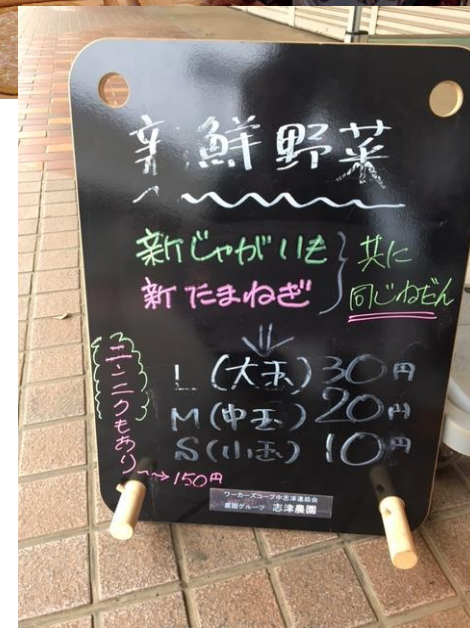 新鮮野菜
新じゃがいも
新たまねぎ
共に
同じねだん
L(大玉)30円
M(中玉)20円
S(小玉)10円
ニンニクもあり
→150円
ワーカーズコープ中志津連絡会
農園グループ 志津農園